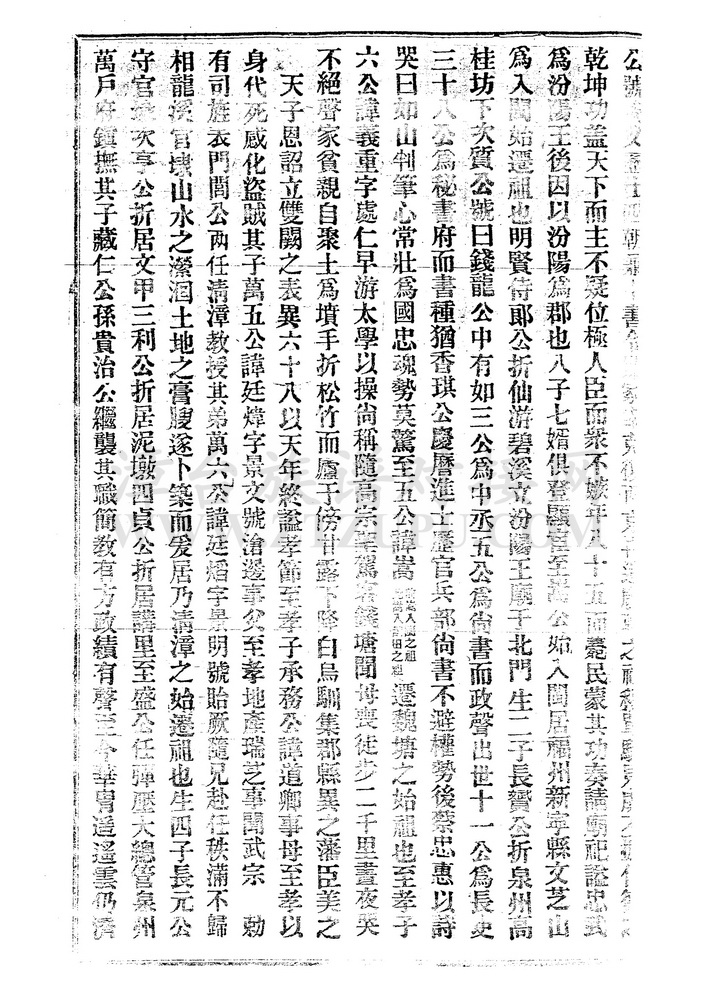 公號
乾坤功蓋天下而主不疑位極人臣而衆不嫉年八十五而薨民蒙其功奏請廟祀謚忠武
爲汾陽王後因以汾陽爲郡也八子七婿俱登顯官至嵩公始入閩居福州新寧縣文芝山
爲入閩始遷祖也明賢侍郞公折仙游碧溪立汾陽王廟于北門生二子長寶公折泉州高
桂坊下次質公號曰錢龍公中有如三公爲中丞五公爲尙書而政聲出世十一公爲長吏
三十八公爲秘書府而書種猶香琪公慶曆進士歷官兵部尙書不避權勢後蔡忠惠以詩
哭曰如山判筆心常壯爲國忠魂勢莫驚至五公諱嵩 遷魏塘之始祖也至孝子
六公諱義重字處仁早游太學以操尙稱隨高宗 錢塘聞母喪徒步二千里晝夜哭
不絕聲家貧親自聚土爲墳手折松竹而廬于傍甘露下降白烏馴集郡縣異之藩臣美之
天子恩詔立雙闕之表異六十八以天年終謚孝節至孝子承務公諱道卿事母至孝以
身代死感化盜賊其子萬五公諱廷煒字景文號滄邊事父至孝地產瑞芝事聞武宗 勅
有司旌表門閭公兩任清漳教授其弟萬六公諱廷熖字景明號貽厥隨兄赴任秩滿不歸
相龍溪官埭山水之瀠洄土地之膏腴遂卜築而爰居乃淸漳之始遷祖也生四子長元公
守官 次亨公折居文甲三利公折居泥墩四貞公折居講里至盛公任彈壓大總管泉州
萬戶府鎭撫其子藏仁公孫貴治公繼襲其職簡教有方政績有聲至今華冑遙遙雲仍濟
WWW.ZTZUPU.COM